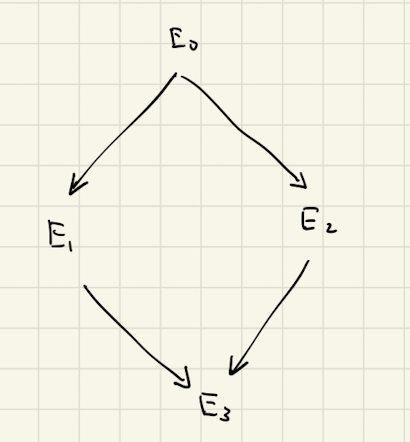 E₀
E₁
E₂
E₃